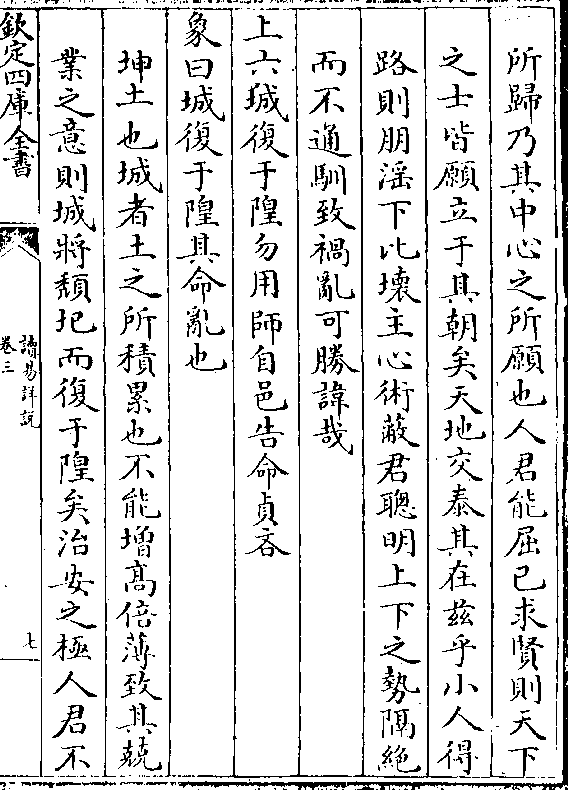 所歸乃其中心之所願也人君能屈已求賢則天下
之士皆願立于其朝矣天地交泰其在兹乎小人得
路則朋淫下比壞主心術蔽君聰明上下之勢隔絶
而不通馴致禍亂可勝諱哉
上六城復于隍勿用師自邑告命貞吝
象曰城復于隍其命亂也
坤土也城者土之所積累也不能增髙倍薄致其兢
業之意則城將頽圯而復于隍矣治安之極人君不
欽定四庫全書
讀易詳説
卷三
七